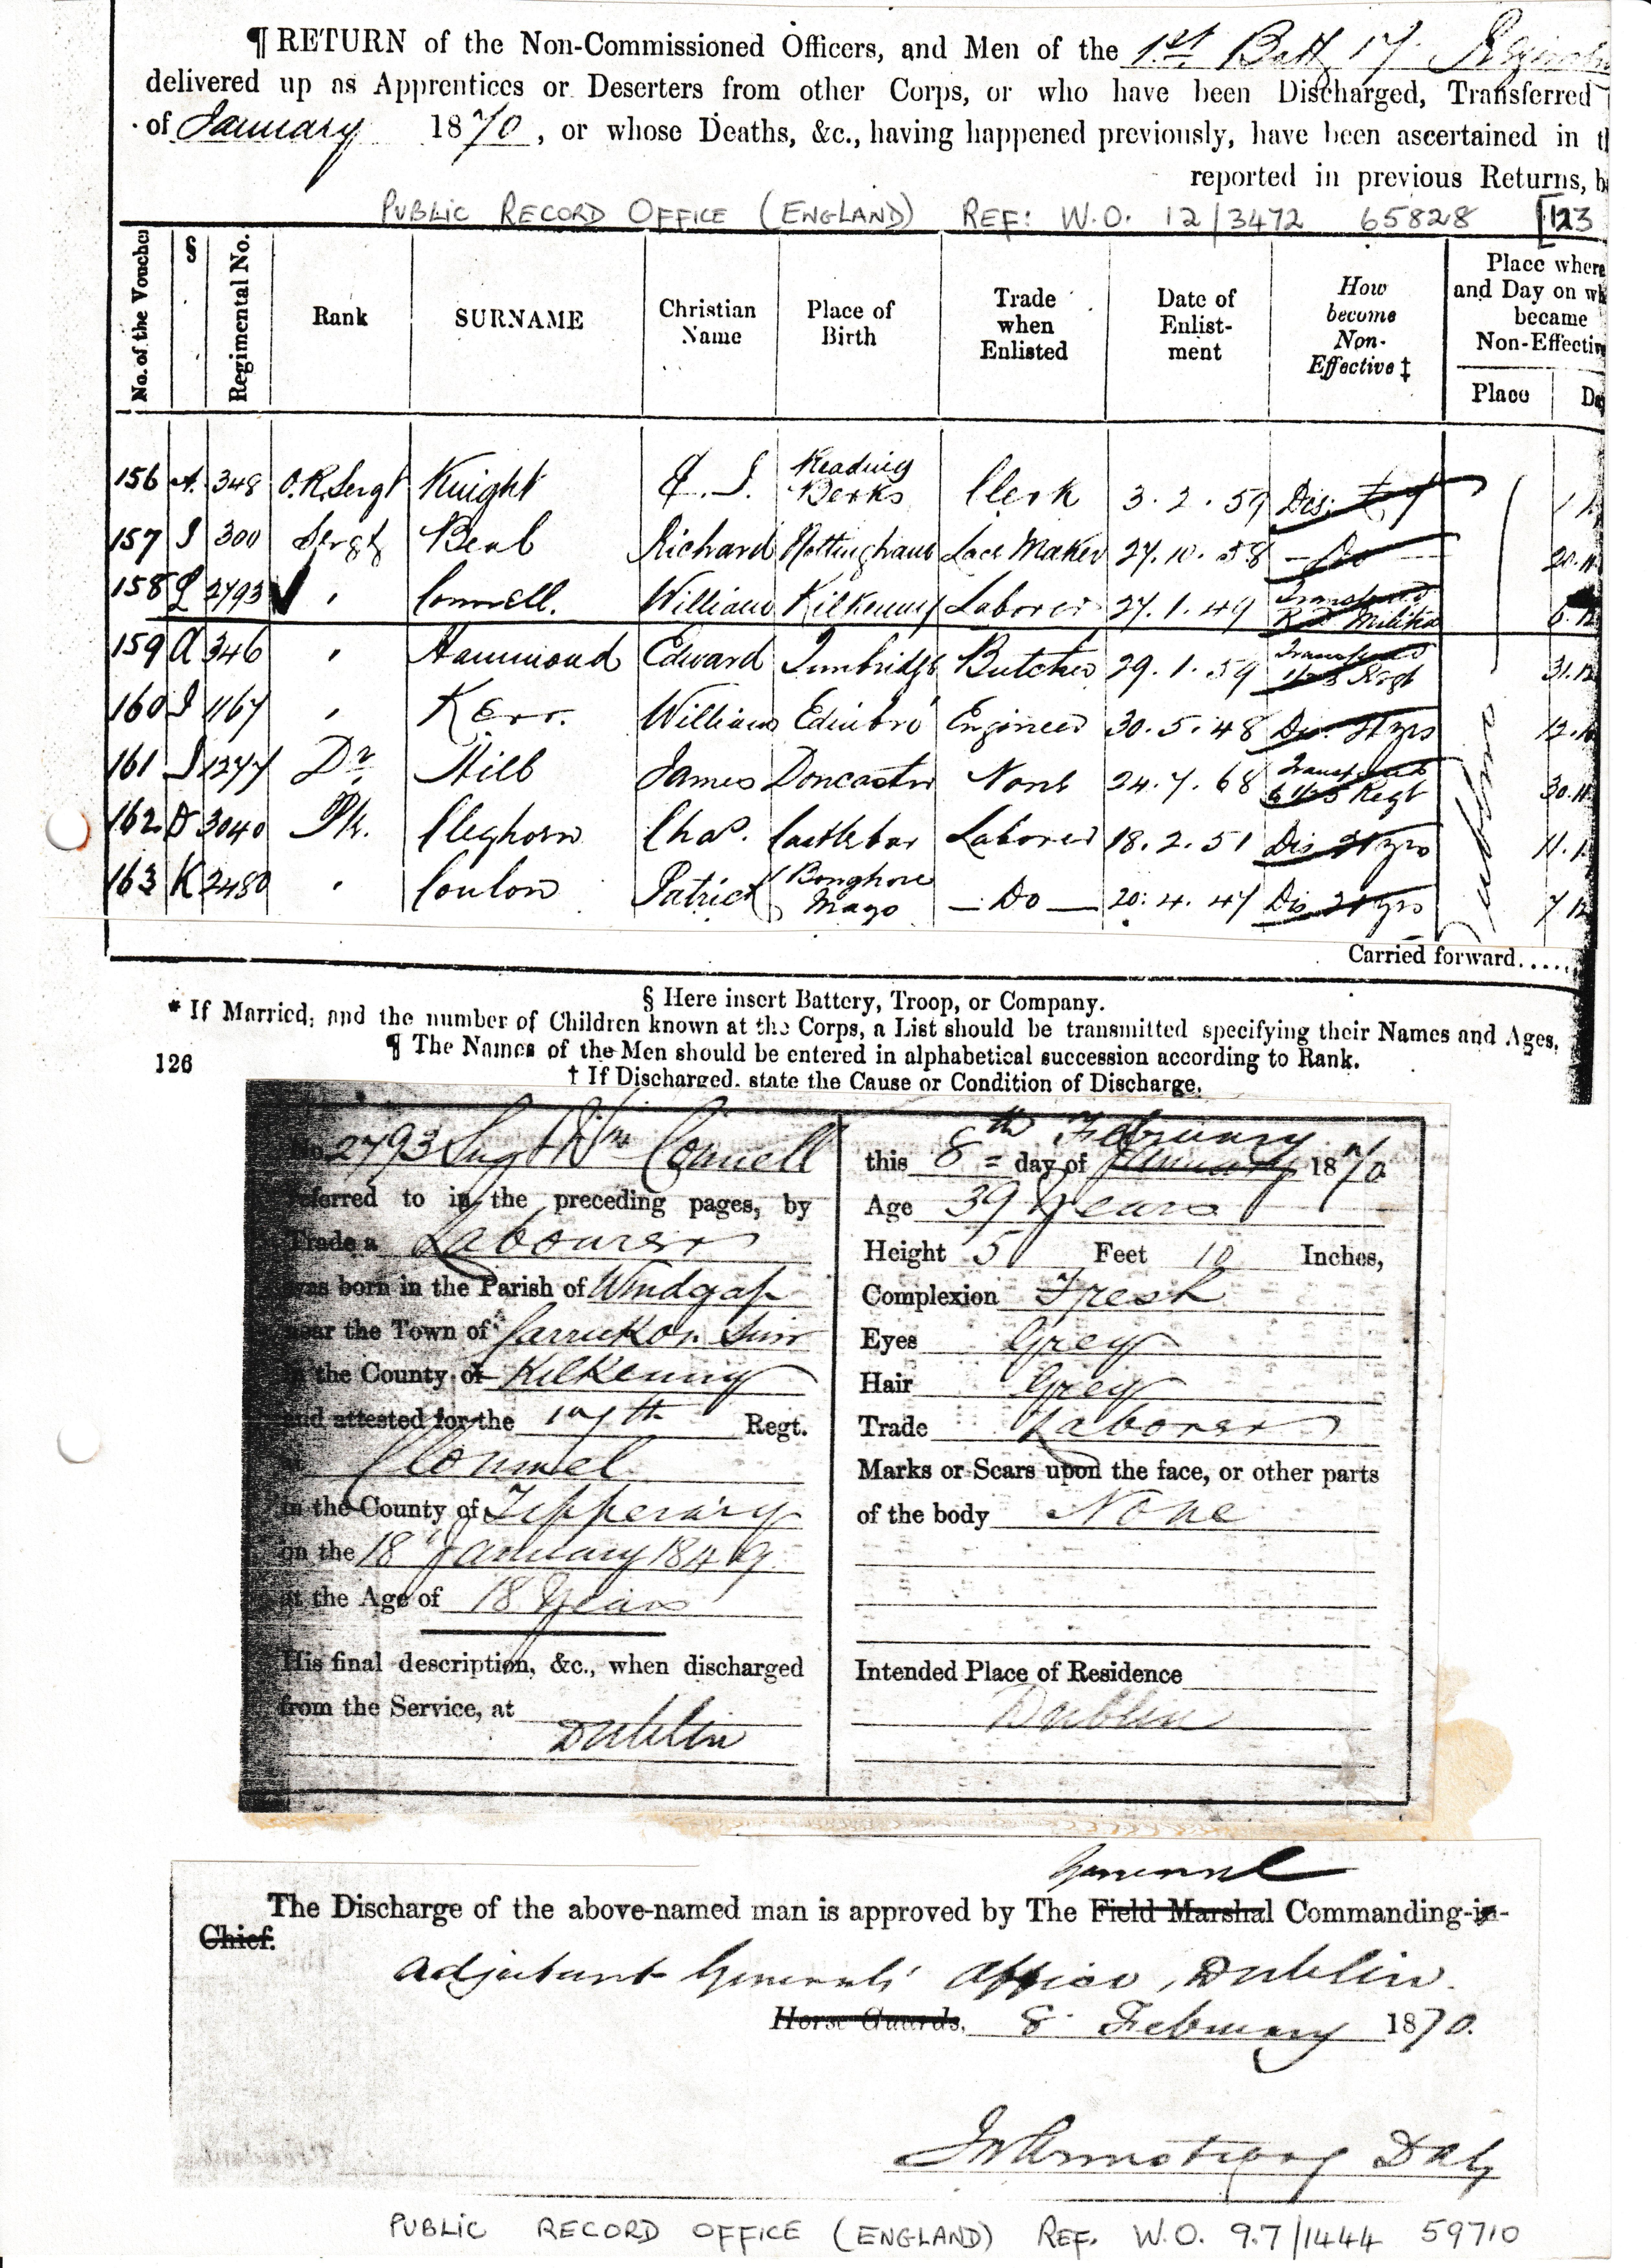 ¶ RETURN of the Non-Commissioned Officers, and Men of the 1st Batt 17
delivered up as Apprentices or Deserters from other Corps, or who have been Discharged, Transferred
of January 1870, or whose Deaths, &c., having happened previously, have been ascertained in
reported in previous Returns,
PUBLIC RECORD OFFICE (ENGLAND) REF: W.O. 12/3472 65828 [123
No. of the Voucher § Regimental No. Rank SURNAME Christian Name Place of Birth Trade when Enlisted Date of Enlist-ment How become Non-Effective ‡ Place where and Day on became Non-Effective
Place
156 A. 348 O.R. Sergt Knight Reading Berks Clerk 3.2.59 Dis:
157 300 Sergt Richard Nottingham Lace Maker 27.10.58 - Do
158 L 2793 ✓ " Connell. William Kilkenny Laborer 27.1.49 Transferred Militia
159 A 346 " Hammond Edward Tunbridge Butcher 29.1.59 Transferred Regt 31.12
160 1167 " Kerr. William Edinbro' Engineer 30.5.48 Dis. 21 yrs
161 1277 Dr. James Doncaster None 24.7.68 Transferred Regt
162 D 3040 Pte. Cleghorn Chas. Castlebar Laborer 18.2.51 Dis 21 yrs
163 K 2480 " Conlon Patrick Mayo - Do - 20.4.47 Dis 21 yrs
Dublin
Carried forward.....
§ Here insert Battery, Troop, or Company.
* If Married, and the number of Children known at the Corps, a List should be transmitted specifying their Names and Ages.
¶ The Names of the Men should be entered in alphabetical succession according to Rank.
126
† If Discharged, state the Cause or Condition of Discharge.
No. 2793 Sergt Wm Connell
referred to in the preceding pages, by
Trade a Labourer
was born in the Parish of Windgap
near the Town of Carrick on Suir
in the County of Kilkenny
and attested for the 17th Regt.
at Clonmel
in the County of Tipperary
on the 18 January 1849
at the Age of 18 Years
His final description, &c., when discharged
from the Service, at
Dublin
February
this 8th day of January 1870
Age 39 Years
Height 5 Feet 10 Inches,
Complexion Fresh
Eyes Grey
Hair Grey
Trade Laborer
Marks or Scars upon the face, or other parts
of the body None
Intended Place of Residence
Dublin
General
The Discharge of the above-named man is approved by The Field Marshal Commanding-in-
Chief.
Adjutant General's Office, Dublin.
Horse Guards, 8 February 1870.
Armstrong DAG
PUBLIC RECORD OFFICE (ENGLAND) REF. W.O. 97/1444 59710